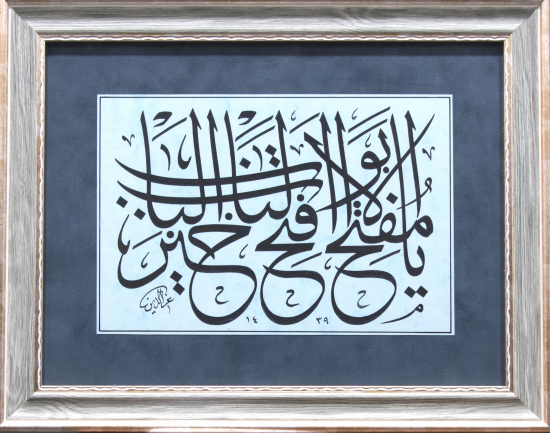 يا مفتح الابواب افتح لنا خير الباب
عزالدين
١٤٣٩